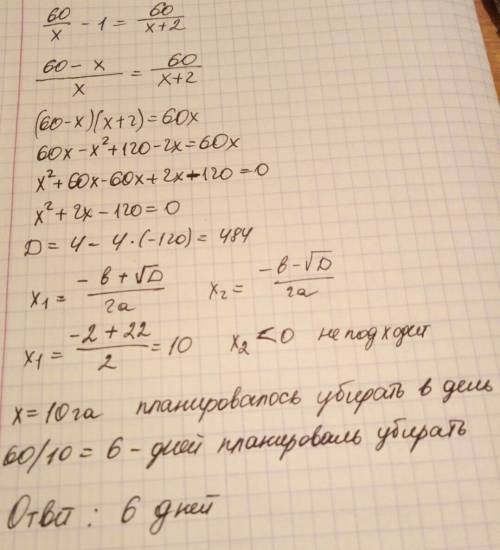 60/x - 1 = 60/(x+2)
(60 - x)/x = 60/(x+2)
(60-x)(x+2) = 60x
60x - x² + 120 - 2x = 60x
x² + 60x - 60x + 2x - 120 = 0
x² + 2x - 120 = 0
D = 4 - 4·(-120) = 484
x₁ = (-b + √D)/2a   x₂ = (-b - √D)/2a
x₁ = (-2 + 22)/2 = 10   x₂ < 0 не подходит
x = 10 га планировалось убирать в день
60/10 = 6 - дней планировали убирать
Ответ: 6 дней